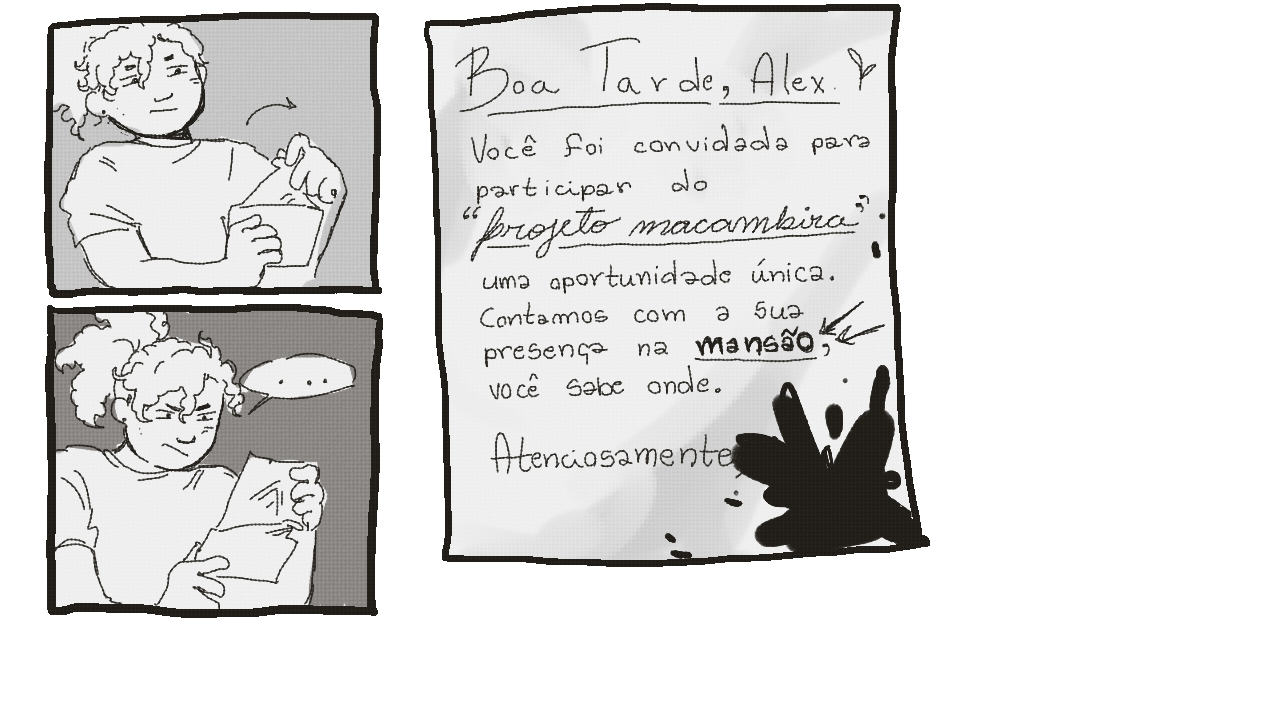 Boa Tarde, Alex.
Você foi convidada para
participar do
"projeto macambira",
uma oportunidade única.
Contamos com a sua
presença na mansão,
você sabe onde.
Atenciosamente
...